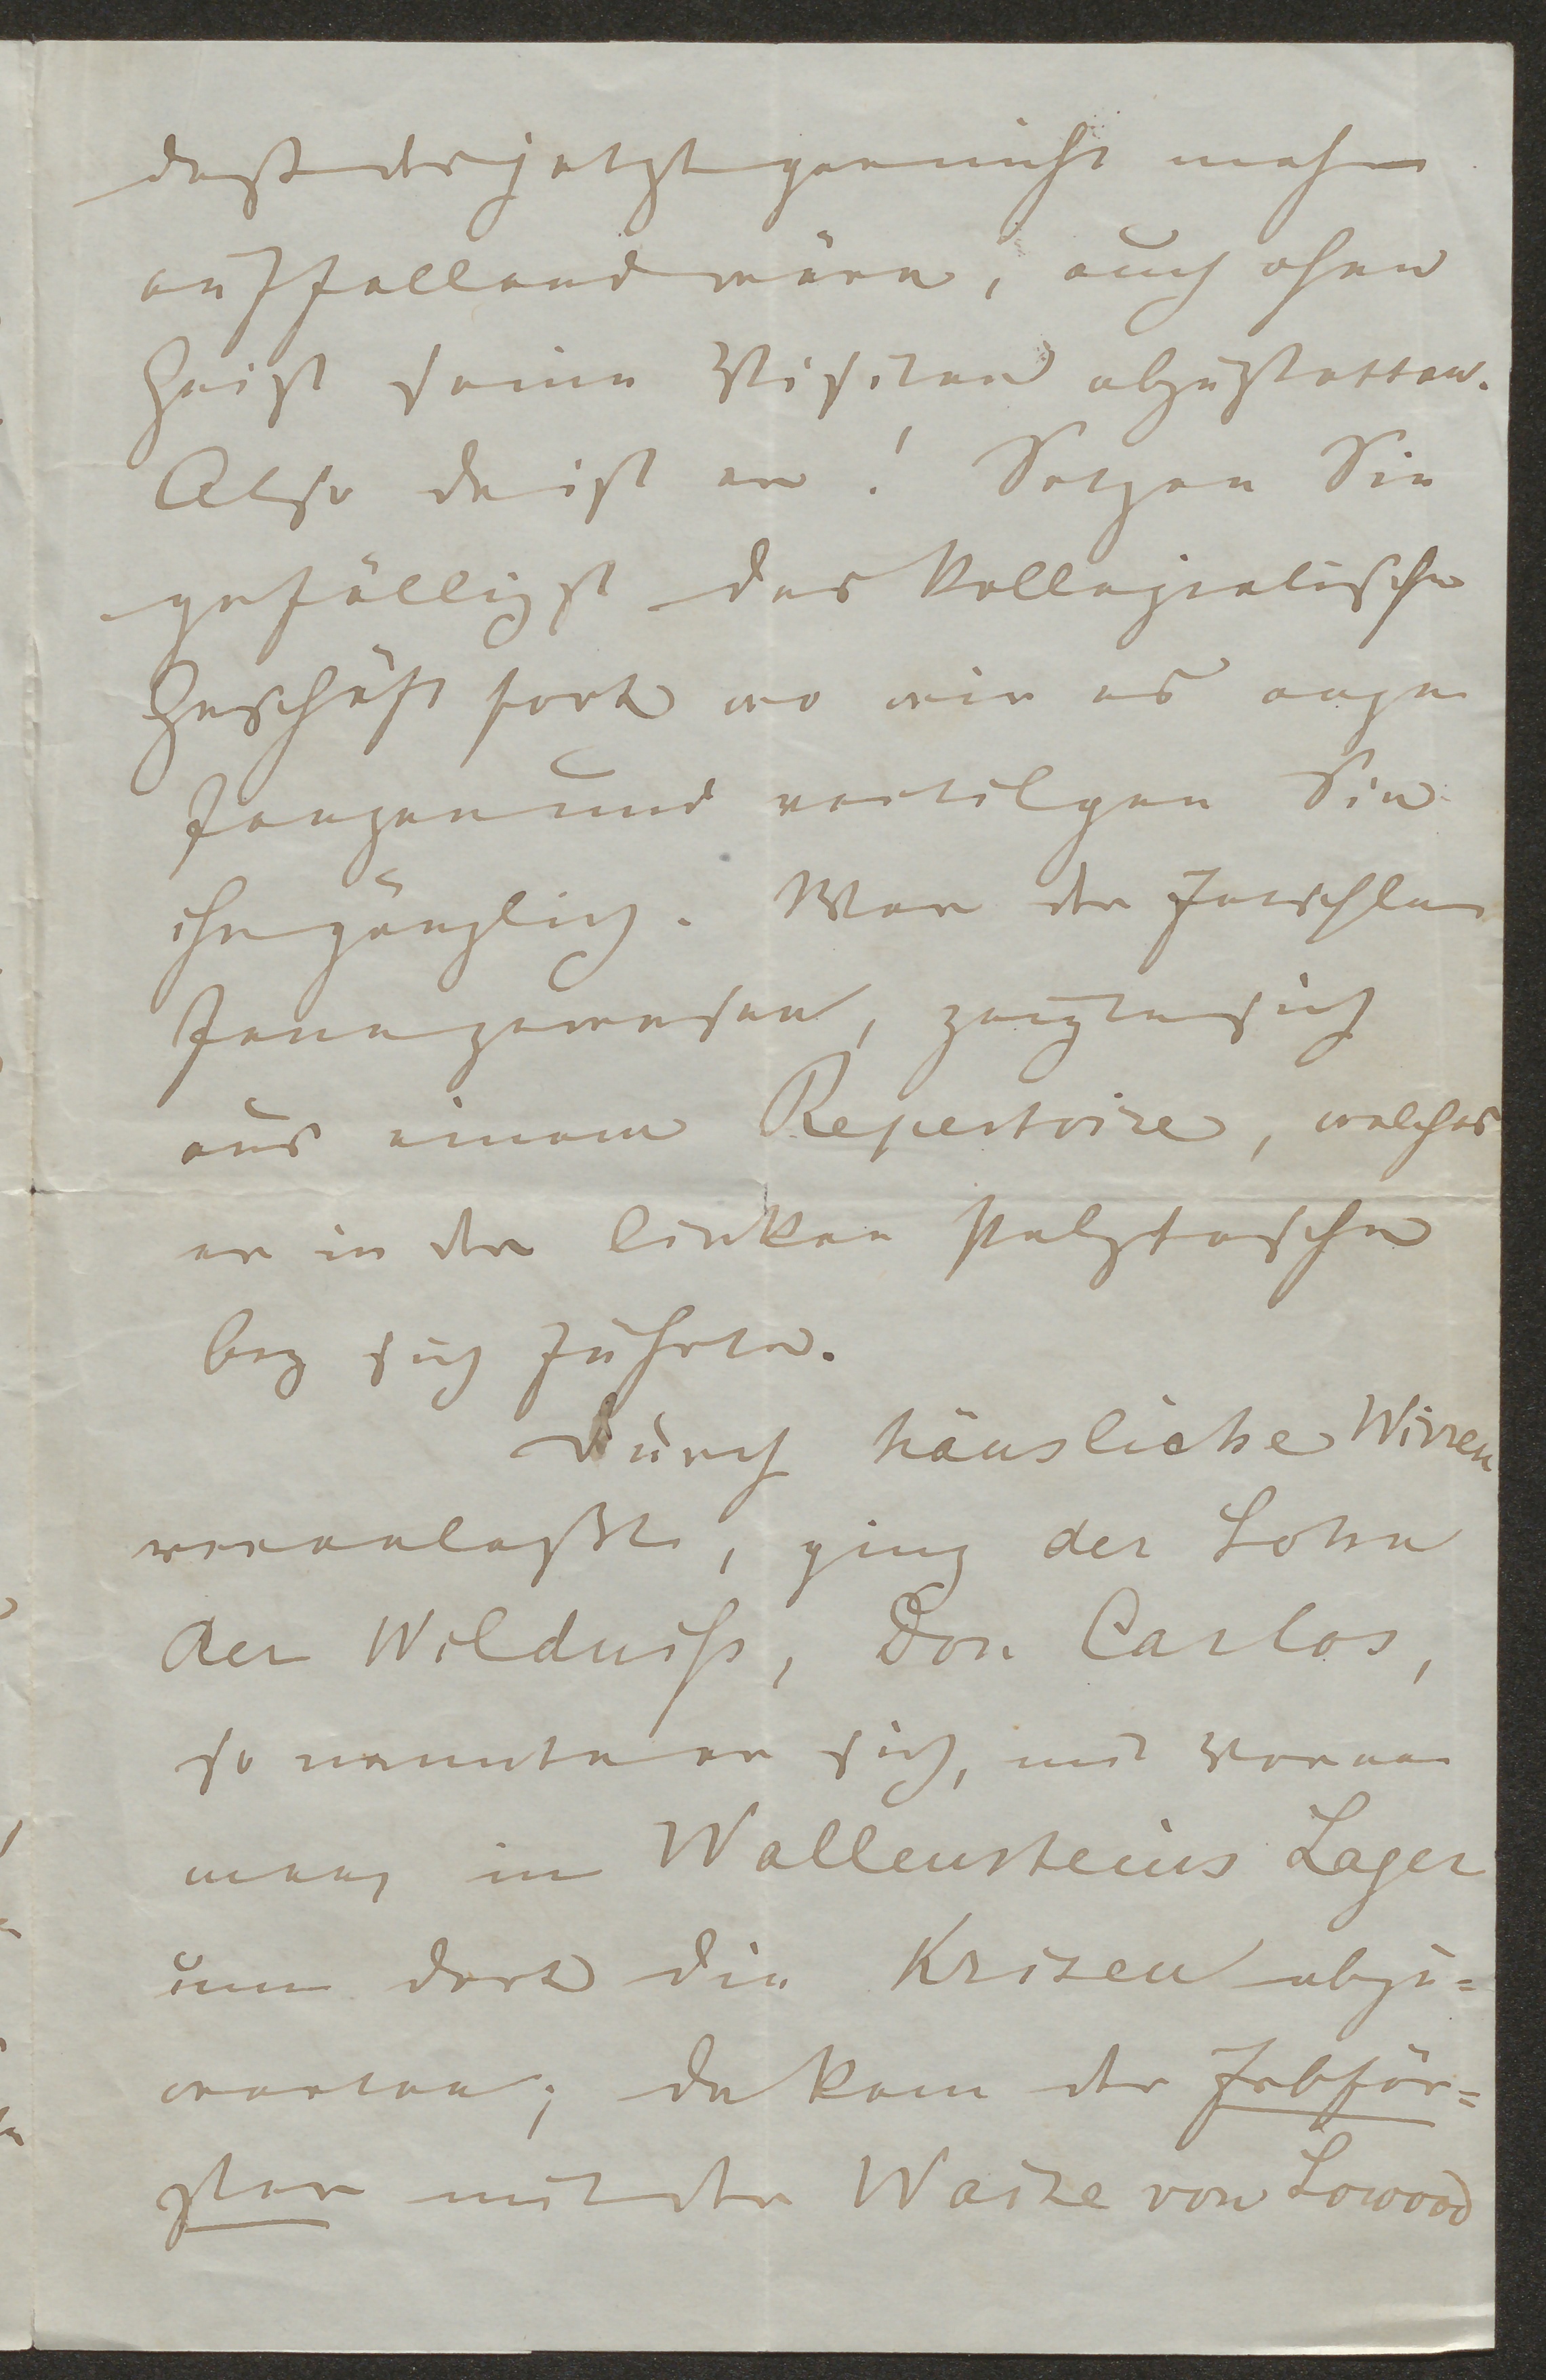 daß der jetzt gar nicht mehr
auffallend wäre, auch ohne
Geist seine Visiten abzustatten.
Also da ist er! Setzen Sie
gefälligst das kollegialische
Geschäft fort wo wir es ange
fangen und vertilgen Sie
ihn gänzlich. Wer der
gewesen, zeigte sich
aus einem Repertoire, welches
er in der linken Pelztasche
bey sich führte.
Durch häusliche Wirren
veranlaßt, ging der Sohn
der Wildniß, Don Carlos,
so nannte er sich, mit
in Wallensteins Lager
um dort die Krisen abzu=
warten; da kam der Erbför=
ster mit der Waise von Lowood